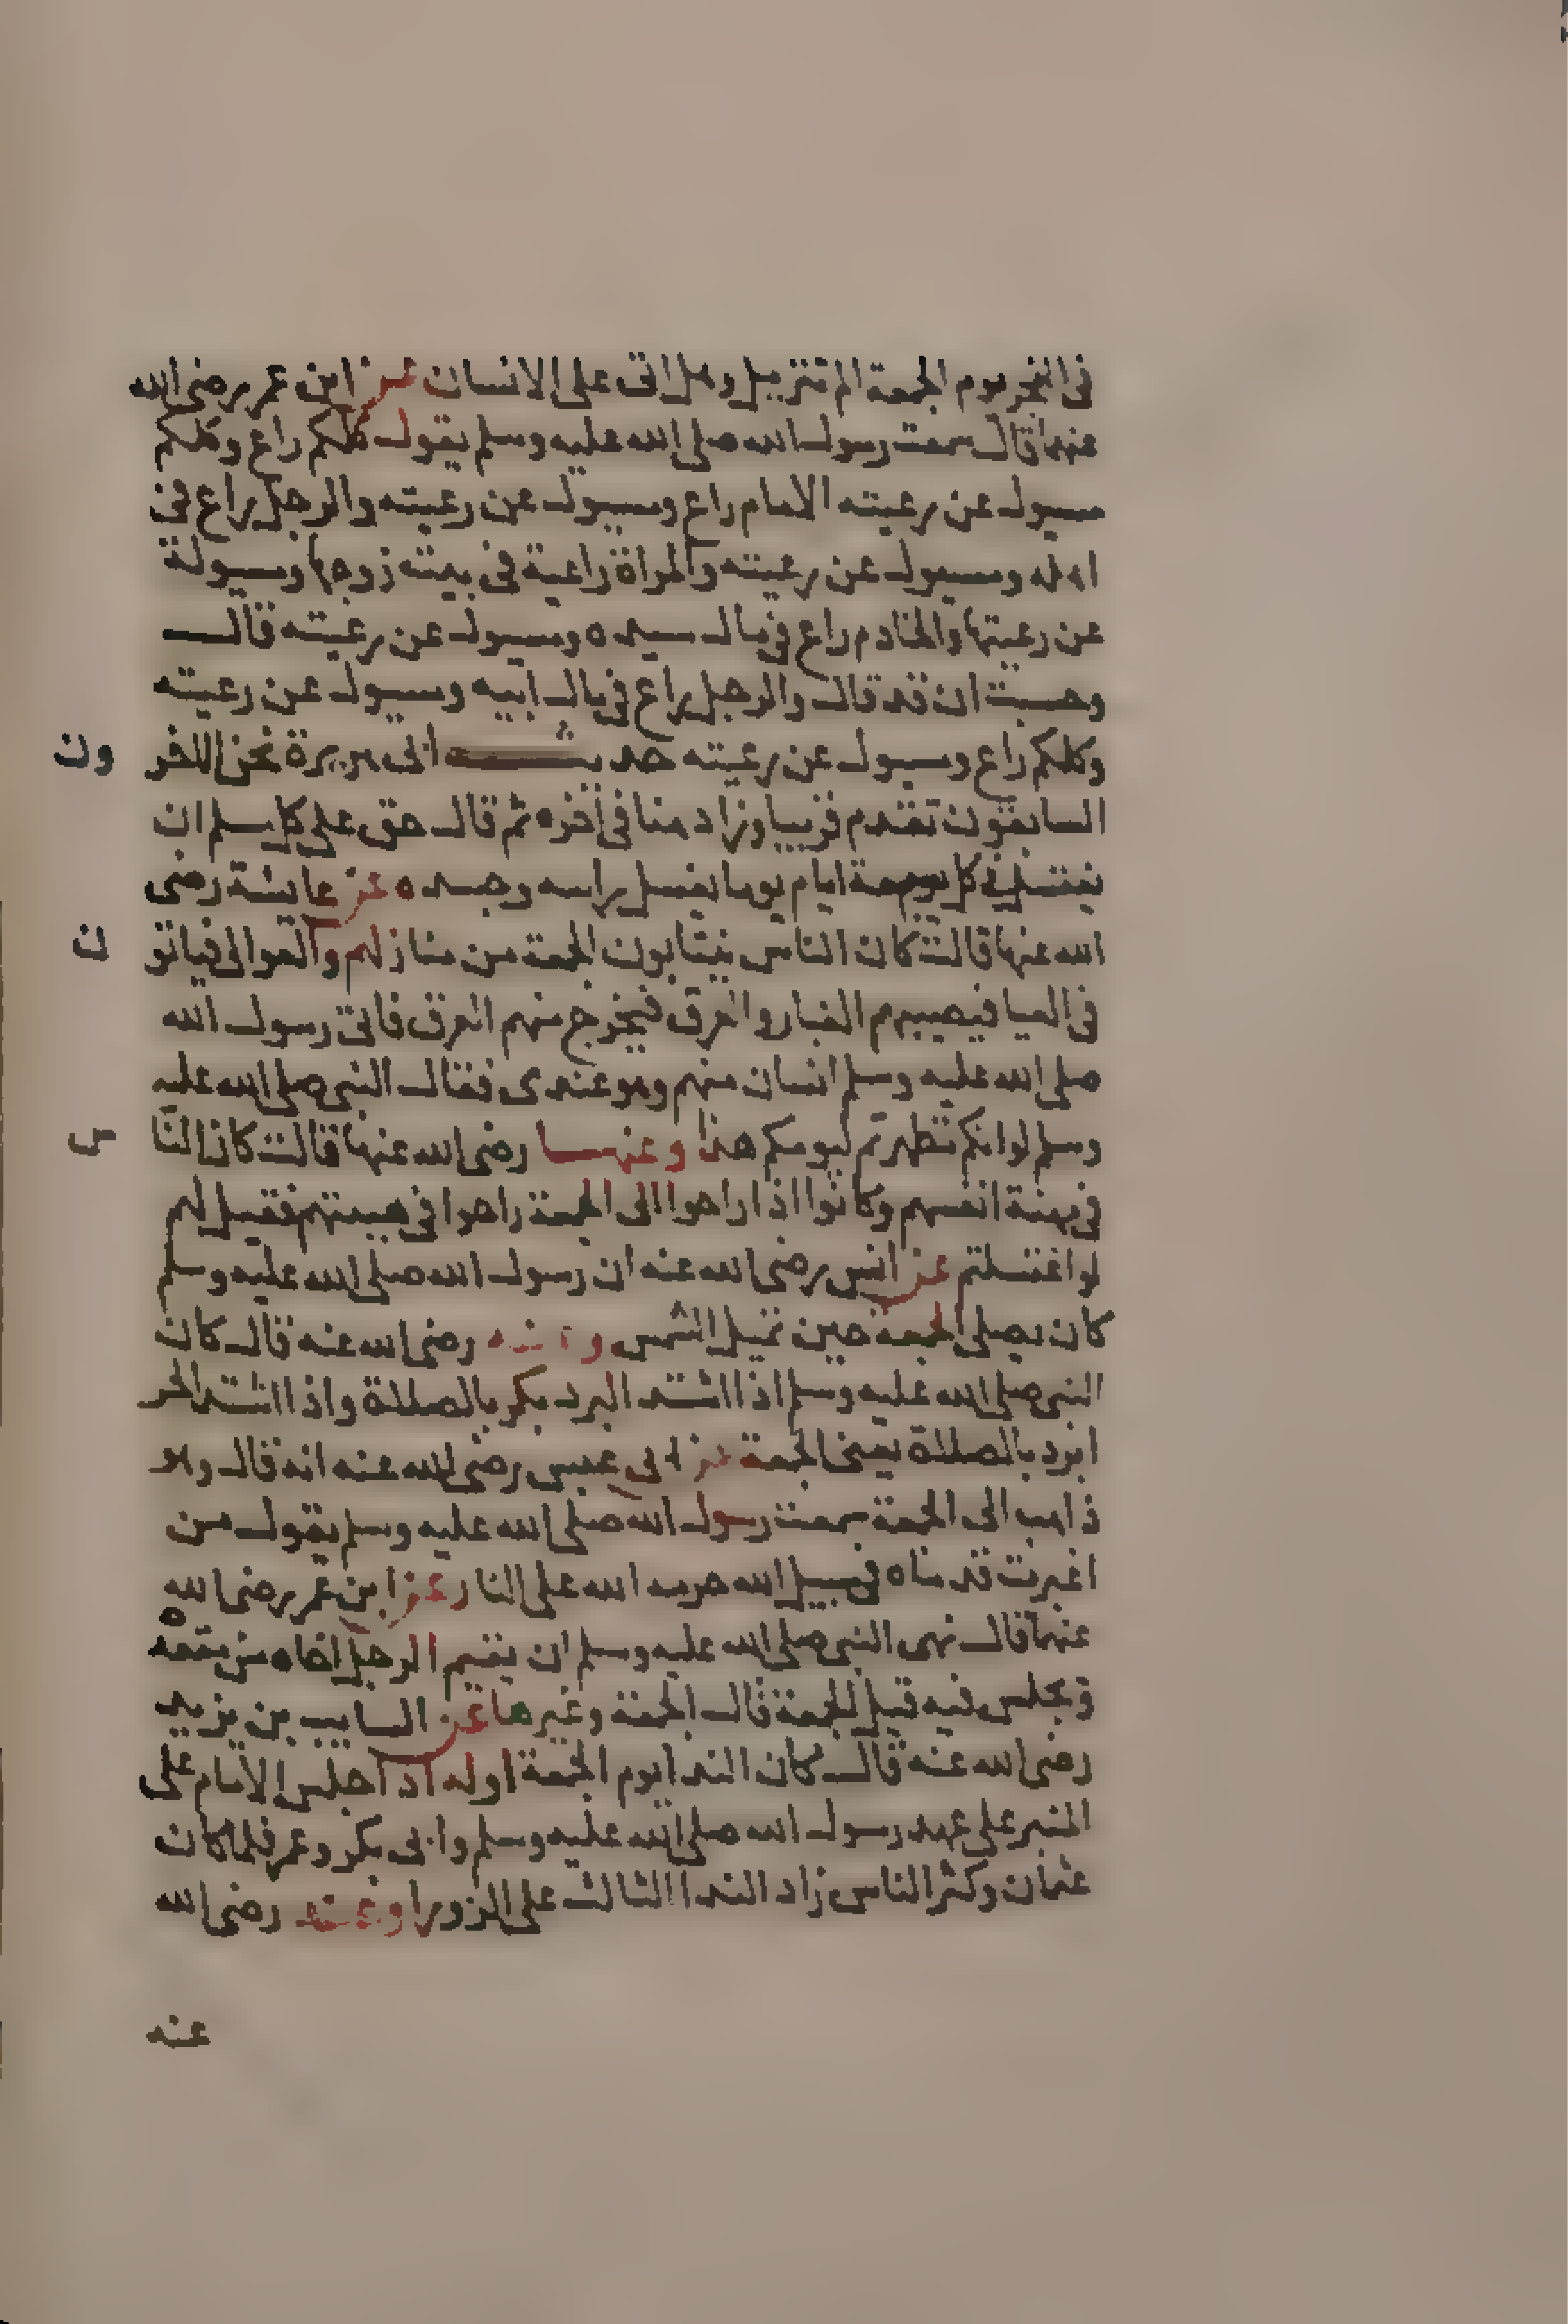 في الفجر يوم الجمعة الم تنزيل وهل اتى على الانسان عن ابن عمر رضي الله
عنهما قال سمعت رسول الله صلى الله عليه وسلم يقول كلكم راع وكلكم
مسيول عن رعيته الامام راع ومسيول عن رعيته والرجل راع في
اهله ومسيول عن رعيته والمراة راعية في بيت زوجها ومسيولة
عن رعيتها والخادم راع في مال سيده ومسيول عن رعيته قال
وحسبت ان قد قال والرجل راع في مال ابيه ومسيول عن رعيته
وكلكم راع ومسيول عن رعيته حديث ابي هريرة نحن الاخرون
السابقون تقدم قريبا وزاد هنا في اخره ثم قال حق على كل مسلم ان
يغتسل في كل سبعة ايام يوما يغسل راسه وجسده عن عايشة رضي
الله عنها قالت كان الناس ينتابون الجمعة من منازلهم والعوالي فياتون
في العبا فيصيبهم الغبار والعرق فيخرج منهم العرق فاتى رسول الله
صلى الله عليه وسلم انسان منهم وهو عندي فقال النبي صلى الله عليه
وسلم لو انكم تطهرتم ليومكم هذا وعنها رضي الله عنها قالت كان الناس
في مهنة انفسهم وكانوا اذا راحوا الى الجمعة راحوا في هييتهم فقيل لهم
لو اغتسلتم عن انس رضي الله عنه ان رسول الله صلى الله عليه وسلم
كان يصلي الجمعة حين تميل الشمس وعنه رضي الله عنه قال كان
النبي صلى الله عليه وسلم اذا اشتد البرد بكر بالصلاة واذا اشتد الحر
ابرد بالصلاة يعني الجمعة عن ابي عبس رضي الله عنه انه قال وهو
ذاهب الى الجمعة سمعت رسول الله صلى الله عليه وسلم يقول من
اغبرت قدماه في سبيل الله حرمه الله على النار عن ابن عمر رضي الله
عنهما قال نهى النبي صلى الله عليه وسلم ان يقيم الرجل اخاه من مقعده
ويجلس فيه قيل الجمعة قال الجمعة وغيرها عن السايب بن يزيد
رضي الله عنه قال كان الندا يوم الجمعة اوله اذا جلس الامام على
المنبر على عهد رسول الله صلى الله عليه وسلم وابي بكر وعمر فلما كان
عثمان وكثر الناس زاد الندا الثالث على الزورا وعنه رضي الله
عنه